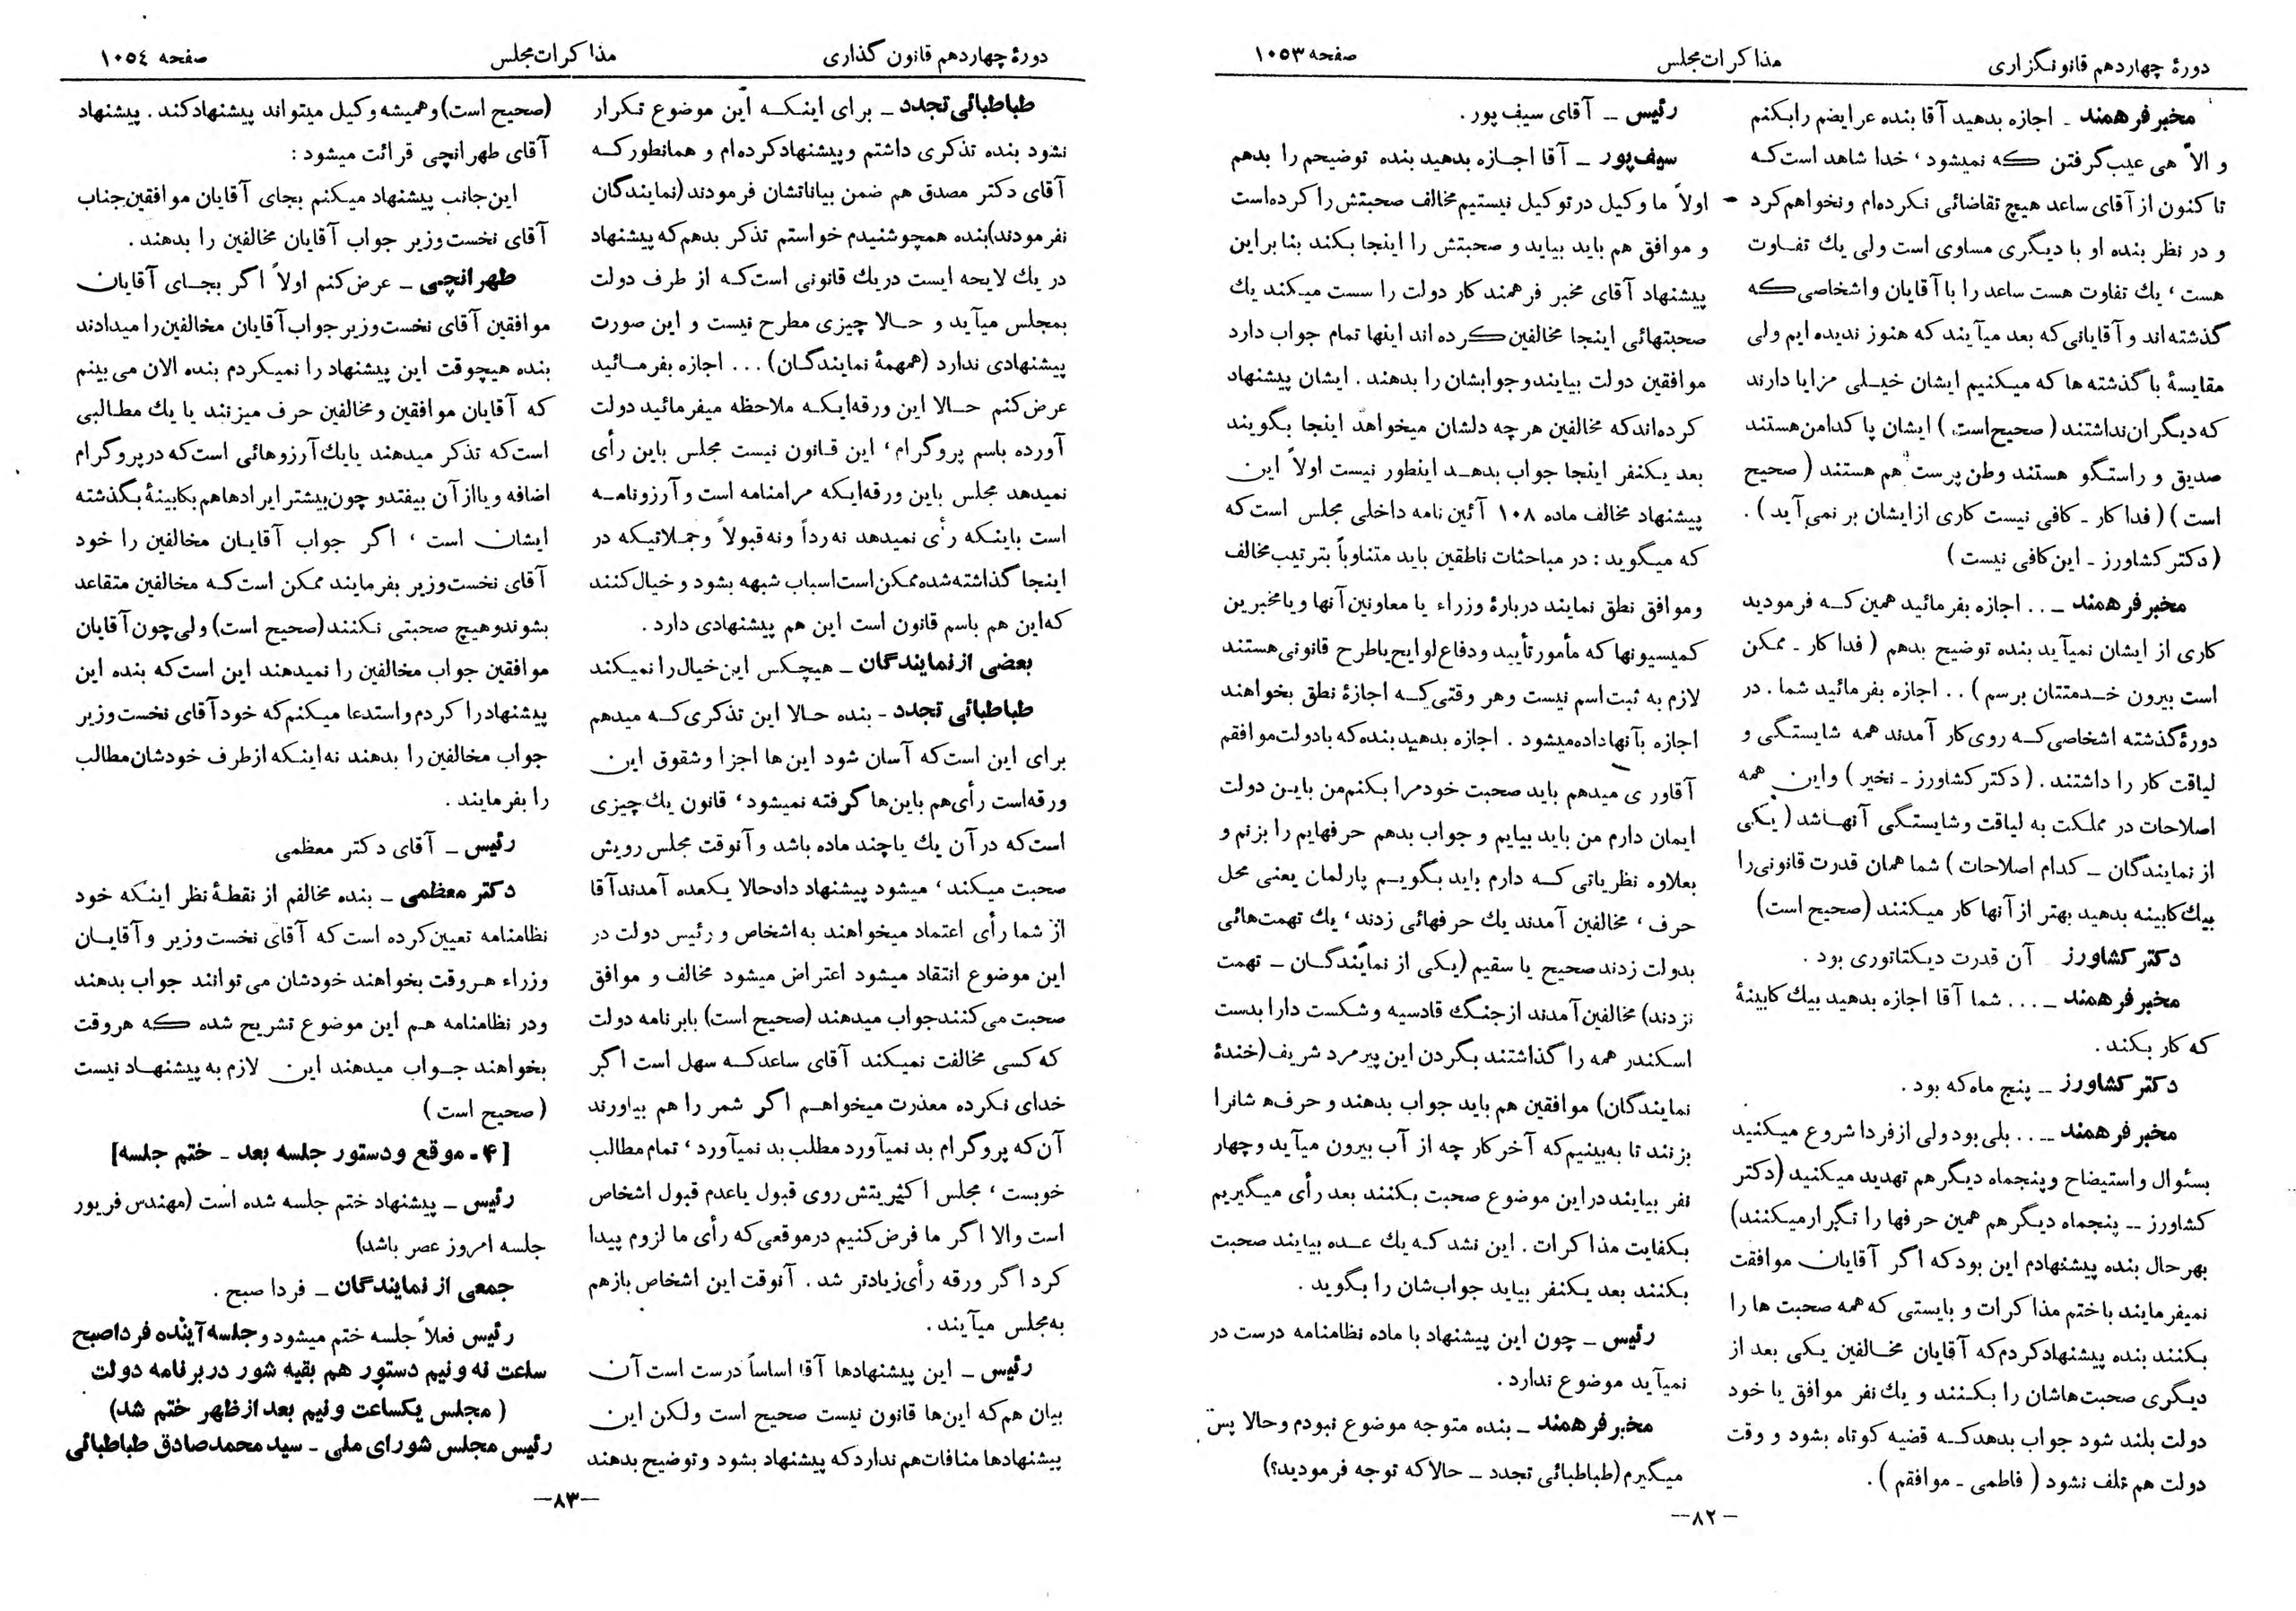 دورهٔ چهاردهم قانونگزاری
مذاکرات مجلس
صفحه ۱۰۵۳
مخبر فرهمند ـ اجازه بدهید آقا بنده عرایضم را بکنم
و الاّ هی عیب گرفتن که نمیشود ، خدا شاهد است که
تا کنون از آقای ساعد هیچ تقاضائی نکرده‌ام و نخواهم کرد
و در نظر بنده او با دیگری مساوی است ولی یك تفاوت
هست ، یك تفاوت هست ساعد را با آقایان و اشخاصی که
گذشته‌اند و آقایانی که بعد میآیند که هنوز ندیده ایم ولی
مقایسهٔ با گذشته ها که میکنیم ایشان خیلی مزایا دارند
که دیگران نداشتند ( صحیح است ) ایشان پاکدامن هستند
صدیق و راستگو هستند وطن پرست هم هستند ( صحیح
است ) ( فداکار ـ کافی نیست کاری از ایشان بر نمی آید ) .
( دکتر کشاورز ـ این کافی نیست )
مخبر فرهمند ـ . . اجازه بفرمائید همین که فرمودید
کاری از ایشان نمیآید بنده توضیح بدهم ( فداکار ـ ممکن
است بیرون خدمتتان برسم ) . . اجازه بفرمائید شما . در
دورهٔ گذشته اشخاصی که روی کار آمدند همه شایستگی و
لیاقت کار را داشتند . ( دکتر کشاورز ـ نخیر ) و این همه
اصلاحات در مملکت به لیاقت و شایستگی آنها شد ( یکی
از نمایندگان ـ کدام اصلاحات ) شما همان قدرت قانونی را
بیك کابینه بدهید بهتر از آنها کار میکنند (صحیح است)
دکتر کشاورز ـ آن قدرت دیکتاتوری بود .
مخبر فرهمند ـ . . . شما آقا اجازه بدهید بیك کابینهٔ
که کار بکند .
دکتر کشاورز ـ پنج ماه که بود .
مخبر فرهمند ـ . . بلی بود ولی از فردا شروع میکنید
بسئوال و استیضاح و پنجماه دیگر هم تهدید میکنید (دکتر
کشاورز ـ پنجماه دیگر هم همین حرفها را تکرار میکنند)
بهر حال بنده پیشنهادم این بود که اگر آقایان موافقت
نمیفرمایند با ختم مذاکرات و بایستی که همه صحبت ها را
بکنند بنده پیشنهاد کردم که آقایان مخالفین یکی بعد از
دیگری صحبت‌هاشان را بکنند و یك نفر موافق یا خود
دولت بلند شود جواب بدهد که قضیه کوتاه بشود و وقت
دولت هم تلف نشود ( فاطمی ـ موافقم ) .
رئیس ـ آقای سیف پور .
سیف‌پور ـ آقا اجازه بدهید بنده توضیحم را بدهم
اولاً ما وکیل در توکیل نیستیم مخالف صحبتش را کرده است
و موافق هم باید بیاید و صحبتش را اینجا بکند بنا براین
پیشنهاد آقای مخبر فرهمند کار دولت را سست میکند یك
صحبتهائی اینجا مخالفین کرده اند اینها تمام جواب دارد
موافقین دولت بیایند و جوابشان را بدهند . ایشان پیشنهاد
کرده‌اند که مخالفین هر چه دلشان میخواهد اینجا بگویند
بعد یکنفر اینجا جواب بدهد اینطور نیست اولاً این
پیشنهاد مخالف ماده ۱۰۸ آئین نامه داخلی مجلس است که
که میگوید : در مباحثات ناطقین باید متناوباً بترتیب مخالف
و موافق نطق نمایند دربارهٔ وزراء یا معاونین آنها و یا مخبرین
کمیسیونها که مأمور تأیید و دفاع لوایح یا طرح قانونی هستند
لازم به ثبت اسم نیست و هر وقتی که اجازهٔ نطق بخواهند
اجازه بآنها داده میشود . اجازه بدهید بنده که با دولت موافقم
آقا و ر ی میدهم باید صحبت خودم را بکنم من باین دولت
ایمان دارم من باید بیایم و جواب بدهم حرفهایم را بزنم و
بعلاوه نظریاتی که دارم باید بگویم پارلمان یعنی محل
حرف ، مخالفین آمدند یك حرفهائی زدند ، یك تهمت‌هائی
بدولت زدند صحیح یا سقیم (یکی از نمایندگان ـ تهمت
نزدند) مخالفین آمدند از جنگ قادسیه و شکست دارا بدست
اسکندر همه را گذاشتند بگردن این پیر مرد شریف (خندهٔ
نمایندگان) موافقین هم باید جواب بدهند و حرف‌ه شانرا
بزنند تا به‌بینیم که آخر کار چه از آب بیرون میآید و چهار
نفر بیایند در این موضوع صحبت بکنند بعد رأی میگیریم
بکفایت مذاکرات . این نشد که یك عده بیایند صحبت
بکنند بعد یکنفر بیاید جواب‌شان را بگوید .
رئیس ـ چون این پیشنهاد با ماده نظامنامه درست در
نمیآید موضوع ندارد .
مخبر فرهمند ـ بنده متوجه موضوع نبودم و حالا پس
میگیرم (طباطبائی تجدد ـ حالا که توجه فرمودید؟)
ـ۸۲ـ
دورهٔ چهاردهم قانون گذاری
مذاکرات مجلس
صفحه ۱۰۵٤
طباطبائی تجدد ـ برای اینکه این موضوع تکرار
نشود بنده تذکری داشتم و پیشنهاد کرده‌ام و همانطور که
آقای دکتر مصدق هم ضمن بیاناتشان فرمودند (نمایندگان
نفرمودند) بنده همچو شنیدم خواستم تذکر بدهم که پیشنهاد
در یك لایحه ایست در یك قانونی است که از طرف دولت
بمجلس میآید و حالا چیزی مطرح نیست و این صورت
پیشنهادی ندارد (همهمهٔ نمایندگان) . . . اجازه بفرمائید
عرض کنم حالا این ورقه‌ایکه ملاحظه میفرمائید دولت
آورده باسم پروگرام ، این قانون نیست مجلس باین رأی
نمیدهد مجلس باین ورقه‌ایکه مرامنامه است و آرزونامه
است باینکه رأی نمیدهد نه رداً و نه قبولاً و جملاتیکه در
اینجا گذاشته شده ممکن است اسباب شبهه بشود و خیال کنند
که این هم باسم قانون است این هم پیشنهادی دارد .
بعضی از نمایندگان ـ هیچکس این خیال را نمیکند
طباطبائی تجدد ـ بنده حالا این تذکری که میدهم
برای این است که آسان شود این ها اجزا و شقوق این
ورقه است رأی هم باین‌ها گرفته نمیشود ، قانون یك چیزی
است که در آن یك یا چند ماده باشد و آنوقت مجلس رویش
صحبت میکند ، میشود پیشنهاد داد حالا یکعده آمدند آقا
از شما رأی اعتماد میخواهند به اشخاص و رئیس دولت در
این موضوع انتقاد میشود اعتراض میشود مخالف و موافق
صحبت می‌کنند جواب میدهند (صحیح است) بابرنامه دولت
که کسی مخالفت نمیکند آقای ساعد که سهل است اگر
خدای نکرده معذرت میخواهم اگر شمر را هم بیاورند
آن که پروگرام بد نمیآورد مطلب بد نمیآورد ، تمام مطالب
خوبست ، مجلس اکثریتش روی قبول یا عدم قبول اشخاص
است والا اگر ما فرض کنیم در موقعی که رأی ما لزوم پیدا
کرد اگر ورقه رأی زیادتر شد . آنوقت این اشخاص بازهم
به‌مجلس میآیند .
رئیس ـ این پیشنهادها آقا اساساً درست است آن
بیان هم که این‌ها قانون نیست صحیح است ولکن این
پیشنهادها منافات هم ندارد که پیشنهاد بشود و توضیح بدهند
(صحیح است) و همیشه وکیل میتواند پیشنهاد کند . پیشنهاد
آقای طهرانچی قرائت میشود :
این جانب پیشنهاد میکنم بجای آقایان موافقین جناب
آقای نخست وزیر جواب آقایان مخالفین را بدهند .
طهرانچی ـ عرض کنم اولاً اگر بجای آقایان
موافقین آقای نخست وزیر جواب آقایان مخالفین را میدادند
بنده هیچوقت این پیشنهاد را نمیکردم بنده الان می بینم
که آقایان موافقین و مخالفین حرف میزنند یا یك مطالبی
است که تذکر میدهند یا یك آرزوهائی است که در پروگرام
اضافه و یا از آن بیفتد و چون بیشتر ایرادها هم بکابینهٔ بگذشته
ایشان است ، اگر جواب آقایان مخالفین را خود
آقای نخست وزیر بفرمایند ممکن است که مخالفین متقاعد
بشوند و هیچ صحبتی نکنند (صحیح است) ولی چون آقایان
موافقین جواب مخالفین را نمیدهند این است که بنده این
پیشنهاد را کردم و استدعا میکنم که خود آقای نخست وزیر
جواب مخالفین را بدهند نه اینکه از طرف خودشان مطالب
را بفرمایند .
رئیس ـ آقای دکتر معظمی
دکتر معظمی ـ بنده مخالفم از نقطهٔ نظر اینکه خود
نظامنامه تعیین کرده است که آقای نخست وزیر و آقایان
وزراء هروقت بخواهند خودشان می توانند جواب بدهند
ودر نظامنامه هم این موضوع تشریح شده که هروقت
بخواهند جواب میدهند این لازم به پیشنهاد نیست
( صحیح است )
[ ۴ ـ موقع و دستور جلسه بعد ـ ختم جلسه ]
رئیس ـ پیشنهاد ختم جلسه شده است (مهندس فریور
جلسه امروز عصر باشد)
جمعی از نمایندگان ـ فردا صبح .
رئیس فعلاً جلسه ختم میشود و جلسه آینده فردا صبح
ساعت نه و نیم دستور هم بقیه شور در برنامه دولت
( مجلس یکساعت و نیم بعد از ظهر ختم شد)
رئیس مجلس شورای ملی ـ سید محمد صادق طباطبائی
ـ۸۳ـ